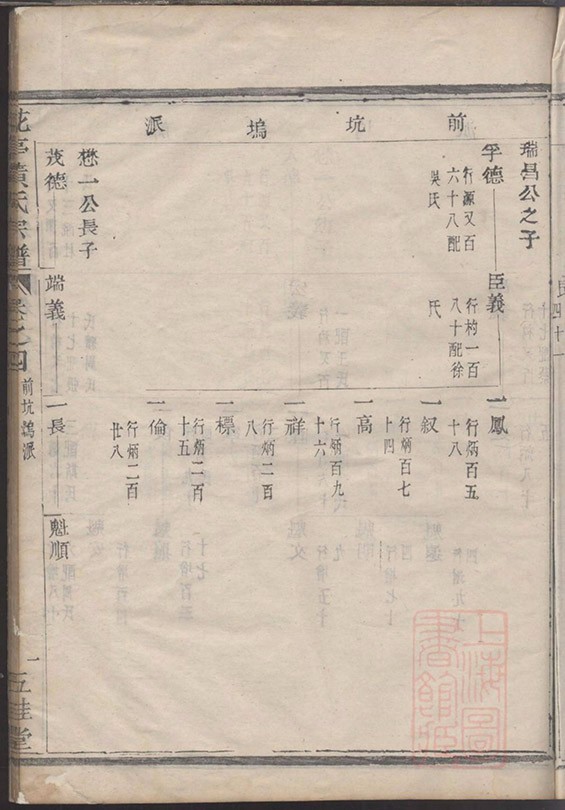 前坑塢派
瑞昌公之子
孚德
行源又百
六十八配
吳氏
臣義
行杓一百
八十配徐
氏
一鳳
行炳百五
十八
一叙
行炳百七
十四
一高
行炳百九
十六
一祥
行炳二百
八
一標
行炳二百
十五
一倫
行炳二百
廿八
懋一公長子
茂德
端義
一長
魁順
黃氏宗譜
卷之四
前坑塢派
一
五桂堂
上海圖
書館藏